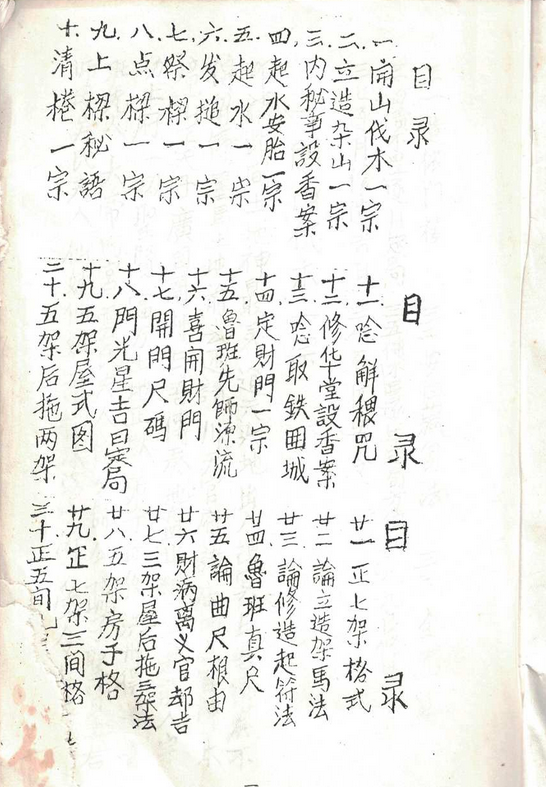 目录
一.開山伐木一宗
二.立造杂山一宗
三.内秘章設香案
四.起水安胎一宗
五.起水一宗
六.发搥一宗
七.祭樑一宗
八.点樑一宗
九.上樑秘語
十.清棬一宗
目录
十一.唸解穢咒
十二.修华堂設香案
十三.唸取鉄囲城
十四.定財門一宗
十五.魯班先師源流
十六.喜開財門
十七.開門尺碼
十八.門光星吉日定局
十九.五架屋式图
二十.五架后拖两架
目录
廿一.正七架格式
廿二.論立造架馬法
廿三.論修造起符法
廿四.魯班真尺
廿五.論曲尺根由
廿六.財病离义官劫吉
廿七.三架屋后拖三架法
廿八.五架房子格
廿九.正七架三间格
三十.正五间